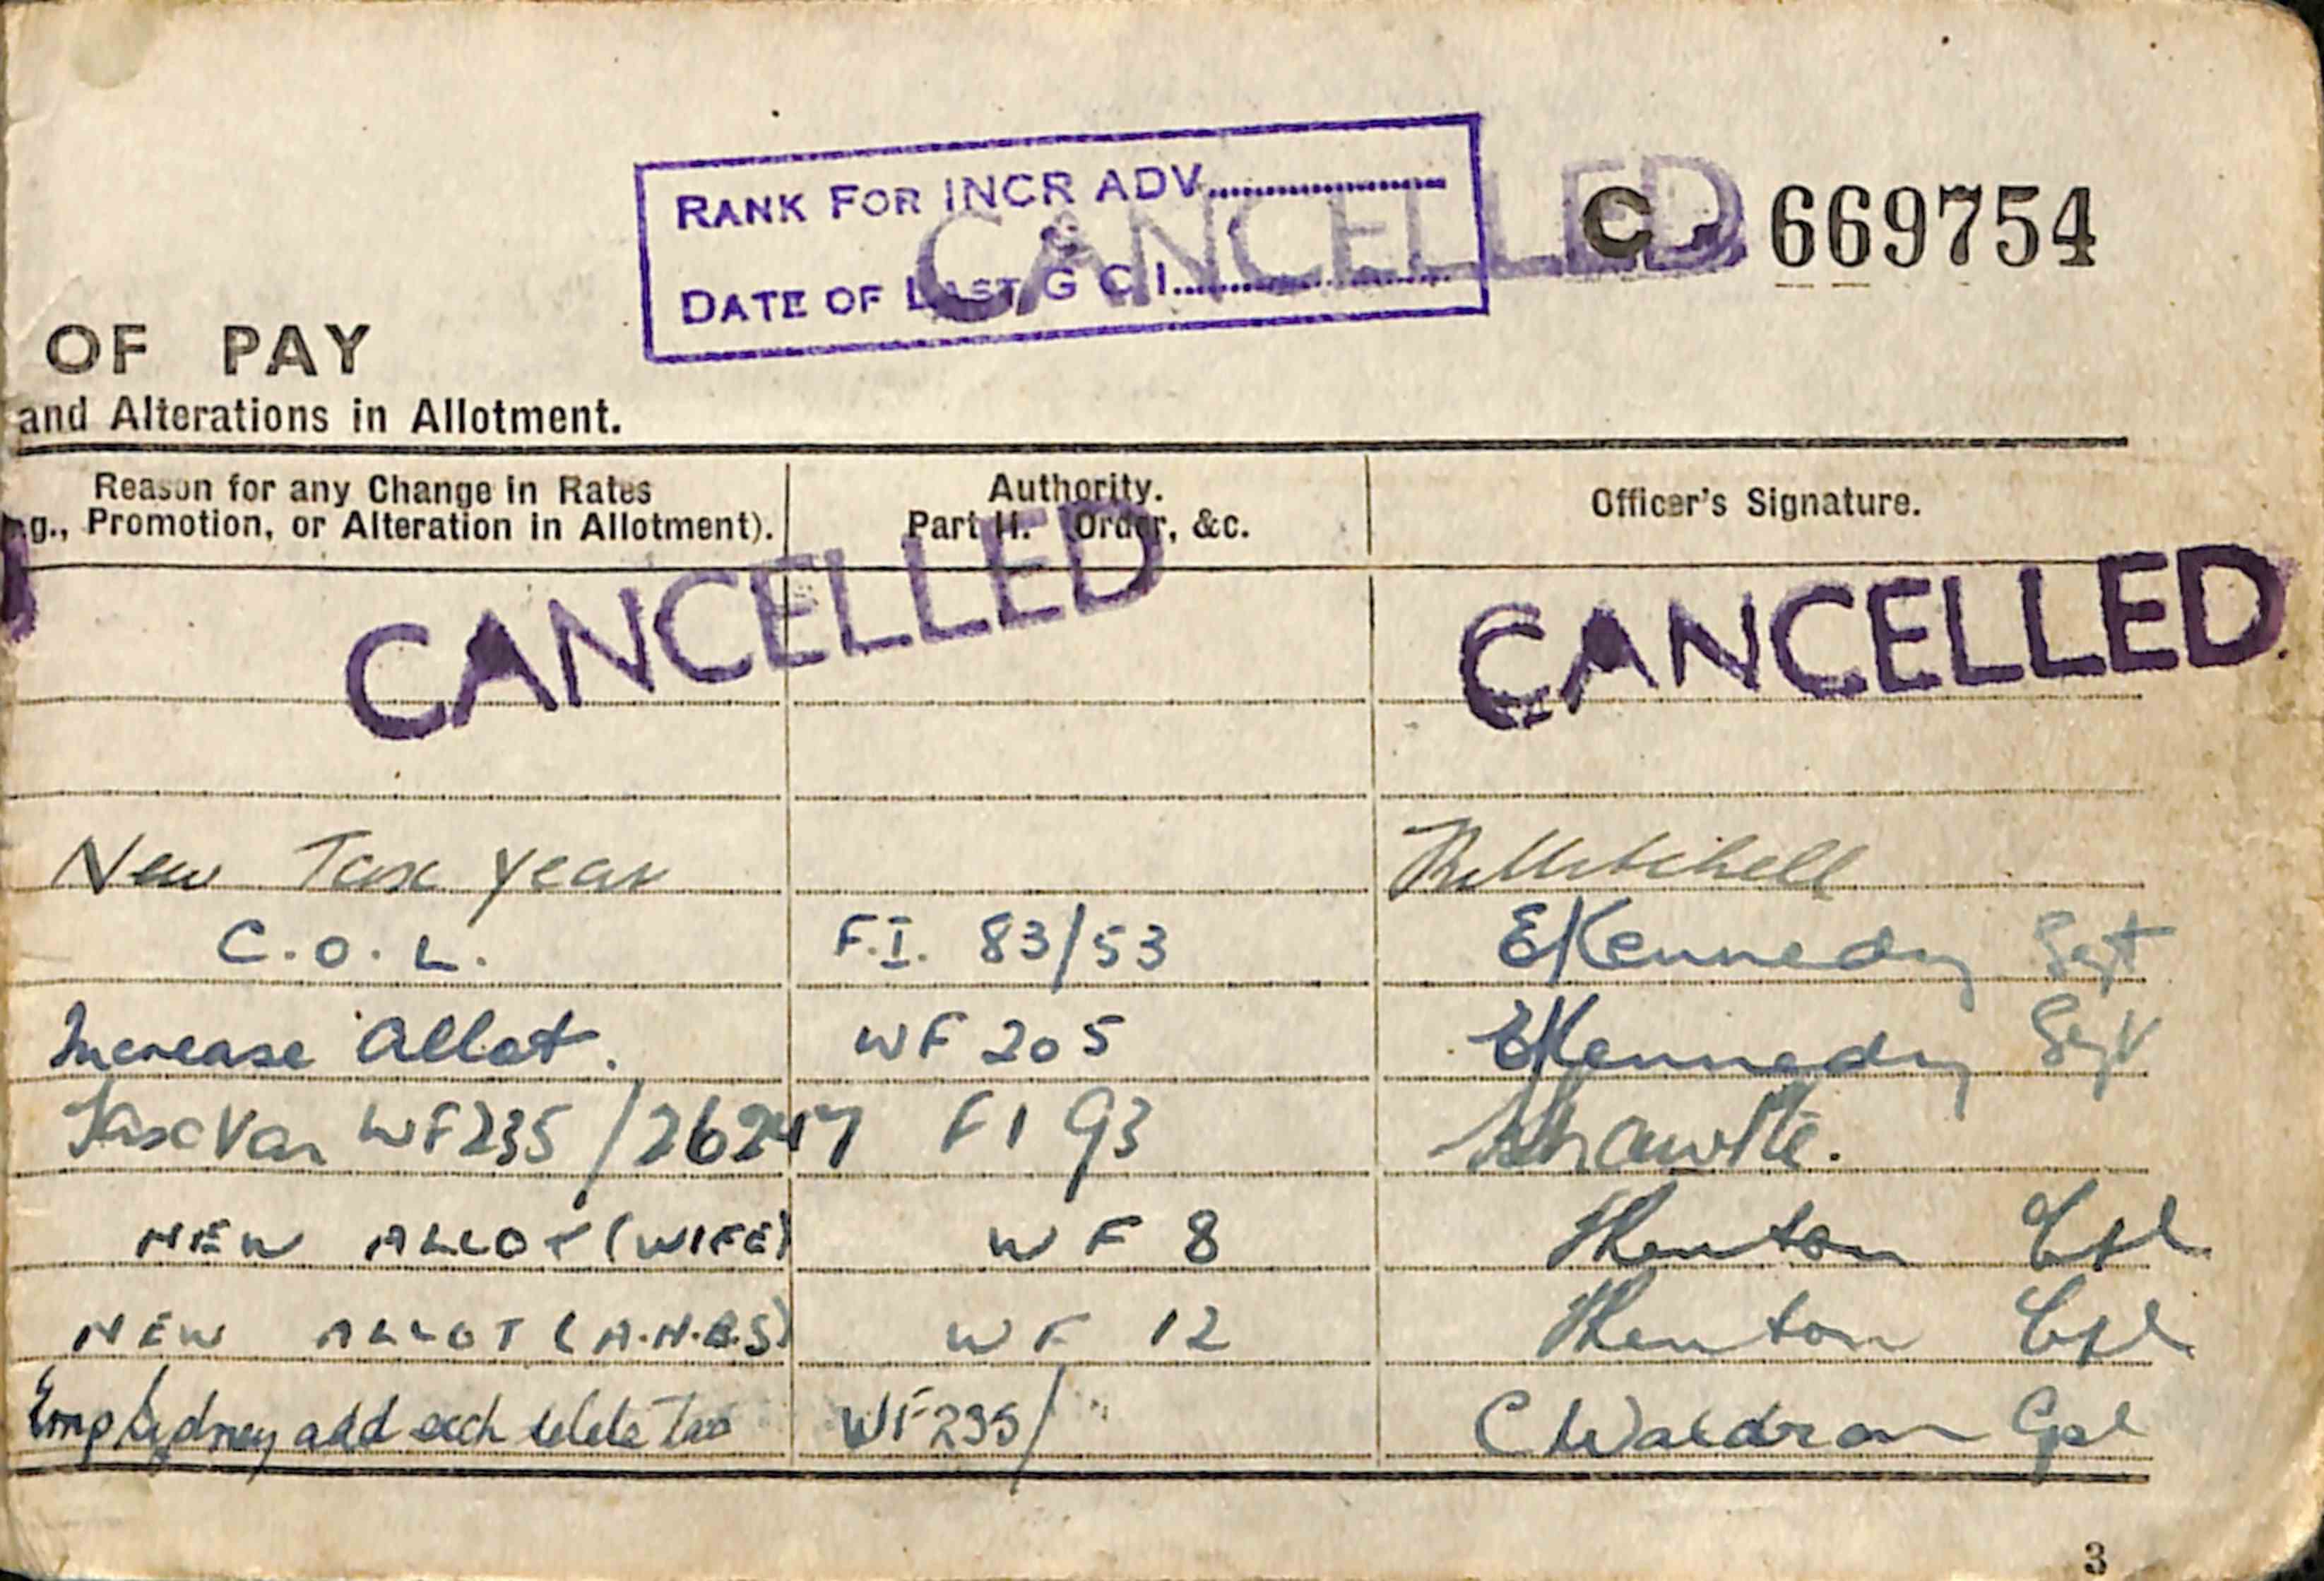 RANK FOR INCR ADV....................
DATE OF LAST G C I....................
CANCELLED
C 669754
OF PAY
and Alterations in Allotment.
Reason for any Change in Rates
g., Promotion, or Alteration in Allotment).
Authority.
Part II. Order, &c.
Officer's Signature.
CANCELLED
CANCELLED
New Tax Year Mitchell
C.O.L. F.I. 83/53 EKennedy Sgt
Increase Allot. WF 205 EKennedy Sgt
Tax Var WF235 / F I 93
NEW ALLOT (WIFE) W F 8 Cpl
NEW ALLOT (A.N.B.S) W F 12 Cpl
add delete WF235/ C Waldron Cpl
3